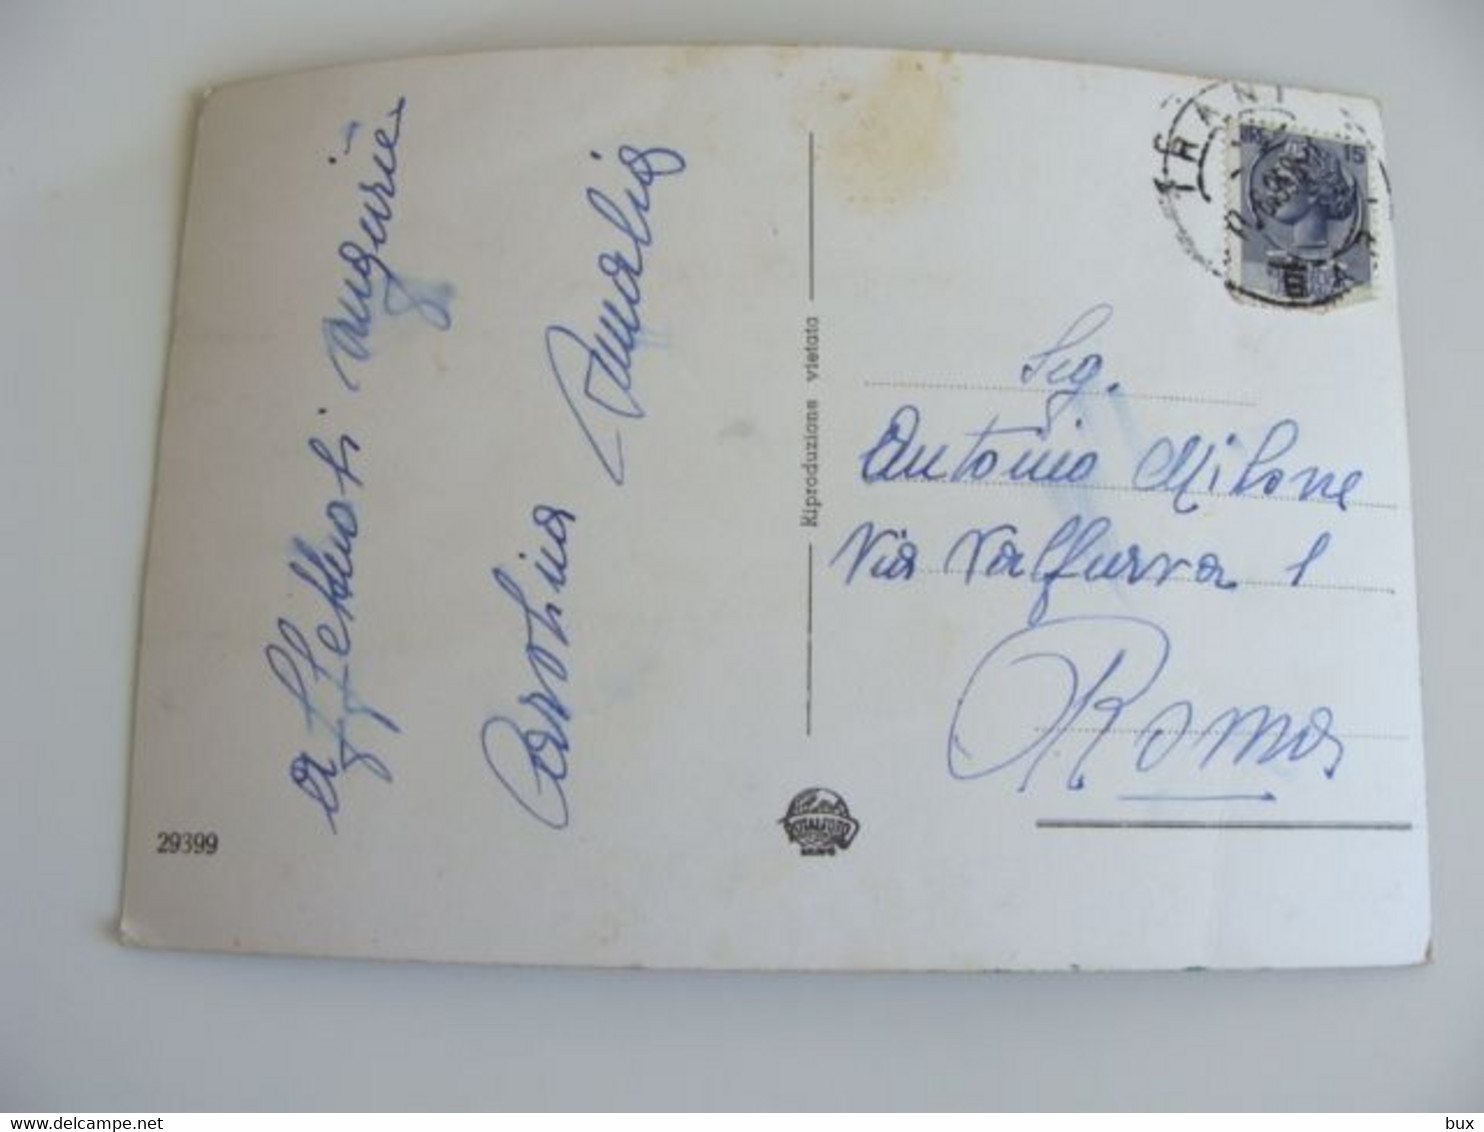 affettuosi auguri
Carolina
Amalia
29399
Riproduzione vietata
TRANI
BA
LIRE 15
Sig.
Antonio Milone
Via Valfurva 1
Roma
www.delcampe.net
bux